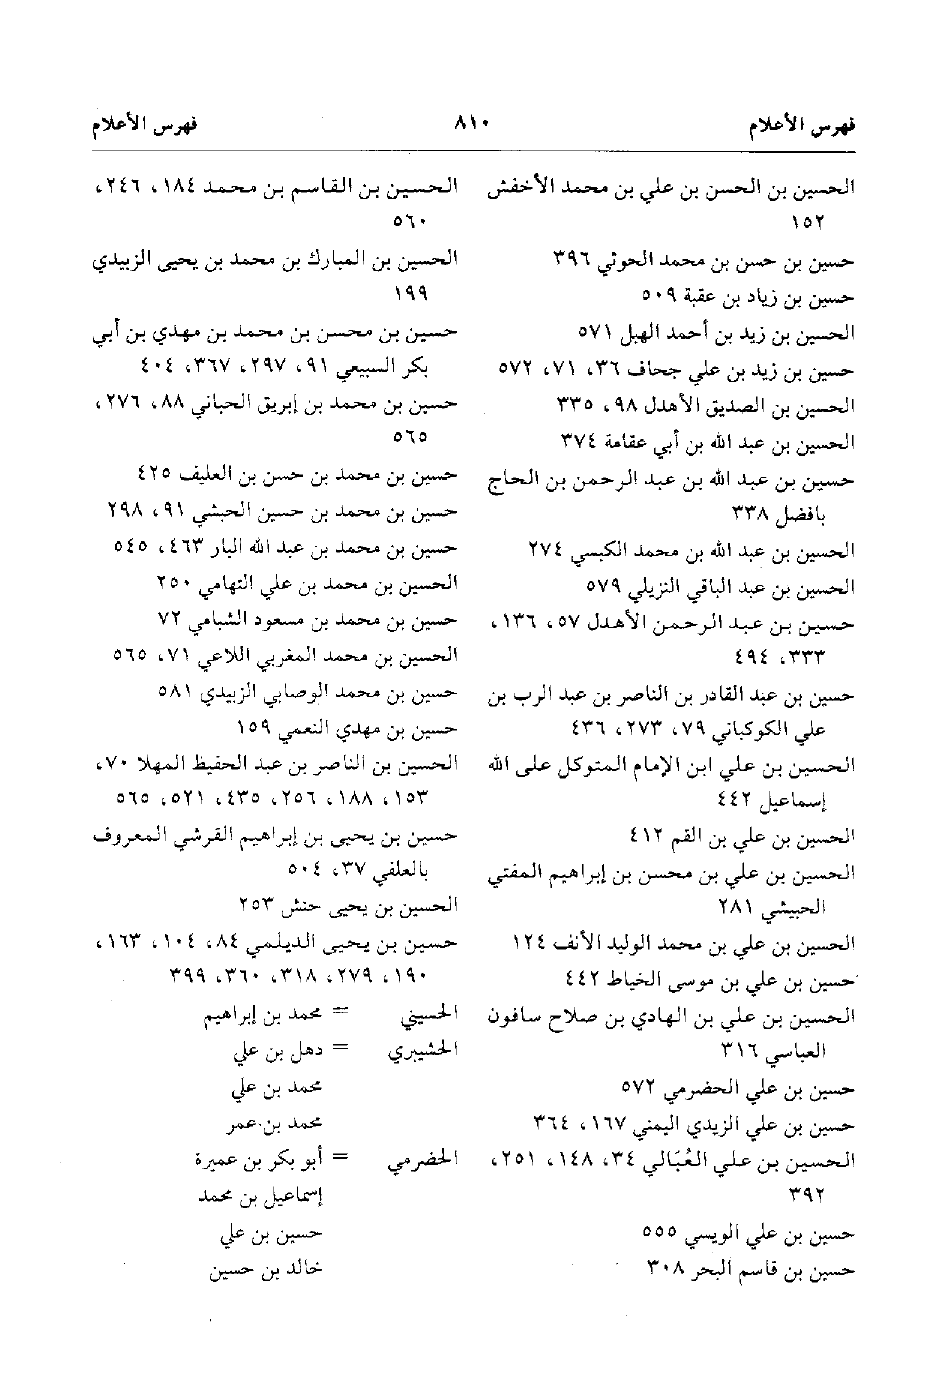 فهرس الأعلام ٨١٠ فهرس الأعلام
الحسين بن الحسن بن علي بن محمد الأخفش
١٥٢
حسين بن حسن بن محمد الحوثي ٣٩٦
حسين بن زياد بن عقبة ٥٠٩
الحسين بن زيد بن أحمد الهبل ٥٧١
حسين بن زيد بن علي جحاف ٣٦، ٧١، ٥٧٢
الحسين بن الصديق الأهدل ٩٨، ٣٣٥
الحسين بن عبد الله بن أبي عقامة ٣٧٤
حسين بن عبد الله بن عبد الرحمن بن الحاج
بافضل ٣٣٨
الحسين بن عبد الله بن محمد الكبسي ٢٧٤
الحسين بن عبد الباقي النزيلي ٥٧٩
حسين بن عبد الرحمن الأهدل ٥٧، ١٣٦،
٣٣٣، ٤٩٤
حسين بن عبد القادر بن الناصر بن عبد الرب بن
علي الكوكباني ٧٩، ٢٧٣، ٤٣٦
الحسين بن علي ابن الإمام المتوكل على الله
إسماعيل ٤٤٢
الحسين بن علي بن القم ٤١٢
الحسين بن علي بن محسن بن إبراهيم المفتي
الحبيشي ٢٨١
الحسين بن علي بن محمد الوليد الأنف ١٢٤
حسين بن علي بن موسى الخياط ٤٤٢
الحسين بن علي بن الهادي بن صلاح سافون
العباسي ٣١٦
حسين بن علي الحضرمي ٥٧٢
حسين بن علي الزيدي اليمني ١٦٧، ٣٦٤
الحسين بن علي العُبَالي ٣٤، ١٤٨، ٢٥١،
٣٩٢
حسين بن علي الويسي ٥٥٥
حسين بن قاسم البحر ٣٠٨
الحسين بن القاسم بن محمد ١٨٤، ٢٤٦،
٥٦٠
الحسين بن المبارك بن محمد بن يحيى الزبيدي
١٩٩
حسين بن محسن بن محمد بن مهدي بن أبي
بكر السبيعي ٩١، ٢٩٧، ٣٦٧، ٤٠٤
حسين بن محمد بن إبريق الحباني ٨٨، ٢٧٦،
٥٦٥
حسين بن محمد بن حسن بن العليف ٤٢٥
حسين بن محمد بن حسين الحبشي ٩١، ٢٩٨
حسين بن محمد بن عبد الله البار ٤٦٣، ٥٤٥
الحسين بن محمد بن علي التهامي ٢٥٠
حسين بن محمد بن مسعود الشبامي ٧٢
الحسين بن محمد المغربي اللاعي ٧١، ٥٦٥
حسين بن محمد الوصابي الزبيدي ٥٨١
حسين بن مهدي النعمي ١٥٩
الحسين بن الناصر بن عبد الحفيظ المهلا ٧٠،
١٥٣، ١٨٨، ٢٥٦، ٤٣٥، ٥٢١، ٥٦٥
حسين بن يحيى بن إبراهيم القرشي المعروف
بالعلفي ٣٧، ٥٠٤
الحسين بن يحيى حنش ٢٥٣
حسين بن يحيى الديلمي ٨٤، ١٠٤، ١٦٣،
١٩٠، ٢٧٩، ٣١٨، ٣٦٠، ٣٩٩
الحسيني = محمد بن إبراهيم
الحشيبري = دهل بن علي
محمد بن علي
محمد بن عمر
الحضرمي = أبو بكر بن عميرة
إسماعيل بن محمد
حسين بن علي
خالد بن حسين